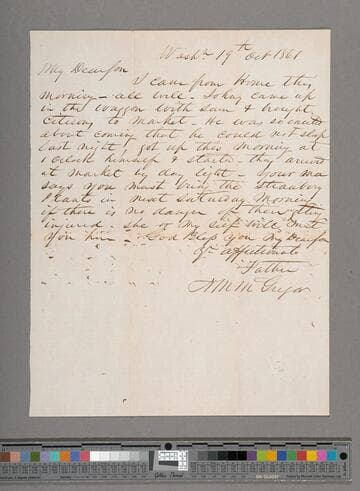 Washn 19th Oct 1861
My Dear Son
I came from Home this
morning — all well. John, came up
in the waggon with Sam & brought
to market — He was so
about coming that he could not sleep
last night, got up this morning at
1 oClock himself & started — they arrived
at market by day light — your ma
says you must bring the Strawbery
Plants in next Saturday Morning
if there is no danger of their getting
injured — She & My Self will meet
you here — God Bless you My Dear Son
Yr affectionate
Father
N M McGregor